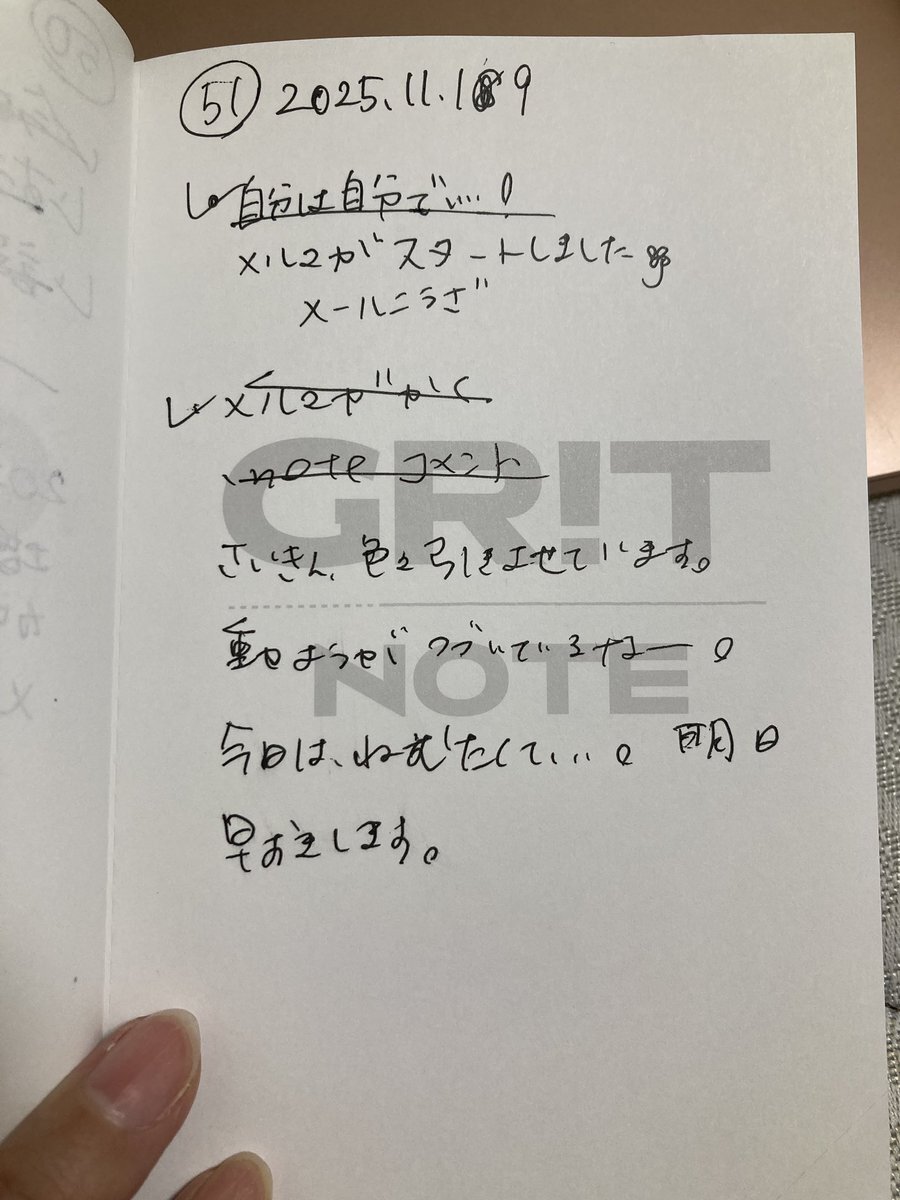 51 2025.11.19
自分は自分で…。
メルマガスタートしました
メールこうざ
メルマガがく
note コメント
GR!T
さいきん、色々引きよせています。
動ようせがつづいているなー。
NOTE
今日は、ねむたくて…。明日
早おきします。